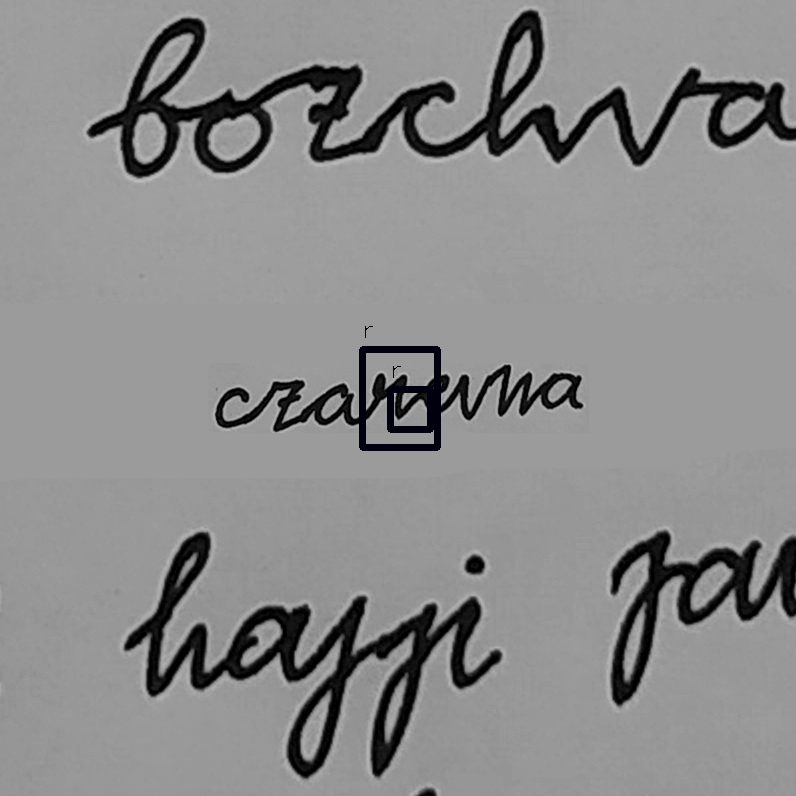 bozchva
r
r
czarevna
hajji